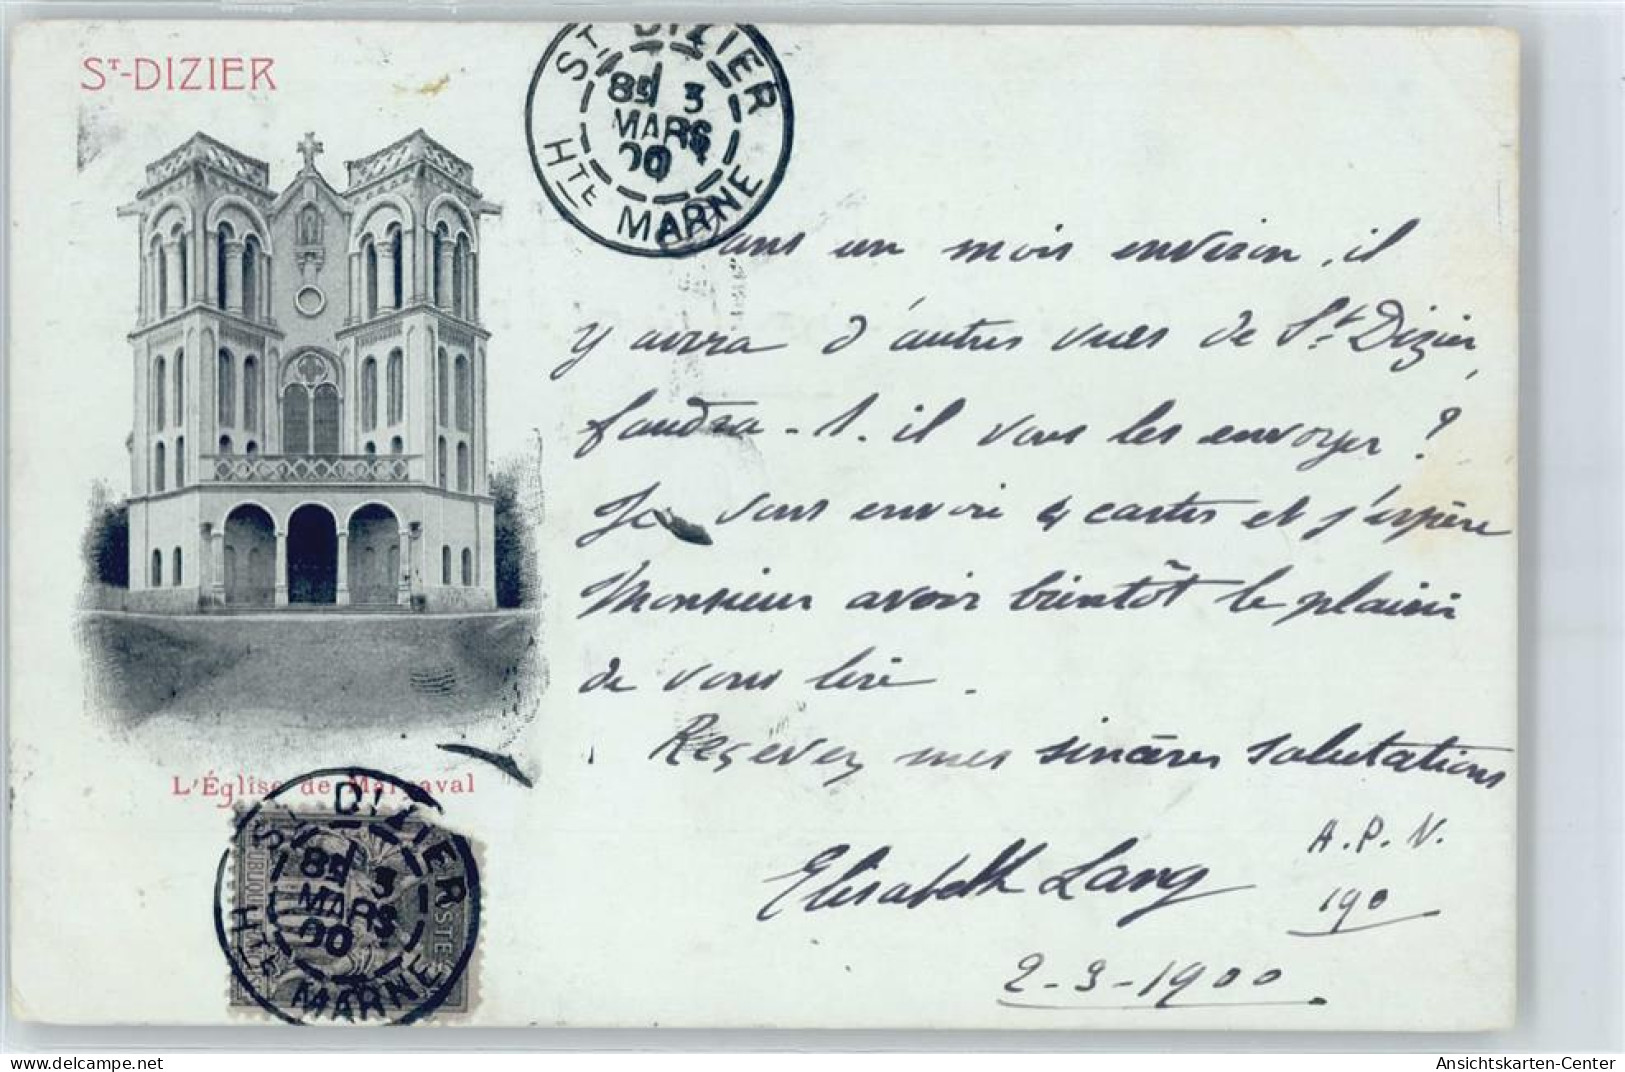 ST-DIZIER
ST DIZIER
8E 3
MARS
00
HTE MARNE
Dans un mois environ, il
y aura d'autres vues de St Dizier,
faudra-t-il vous les envoyer ?
Je vous envoie 4 cartes et j'espère
Monsieur avoir bientôt le plaisir
de vous lire.
Recevez mes sincères salutations
Elisabeth Lang
A.P.V.
190
2-3-1900
L'Église de Marnaval
ST DIZIER
8E 3
MARS
00
HTE MARNE
POSTE
Ansichtskarten-Center
www.delcampe.net